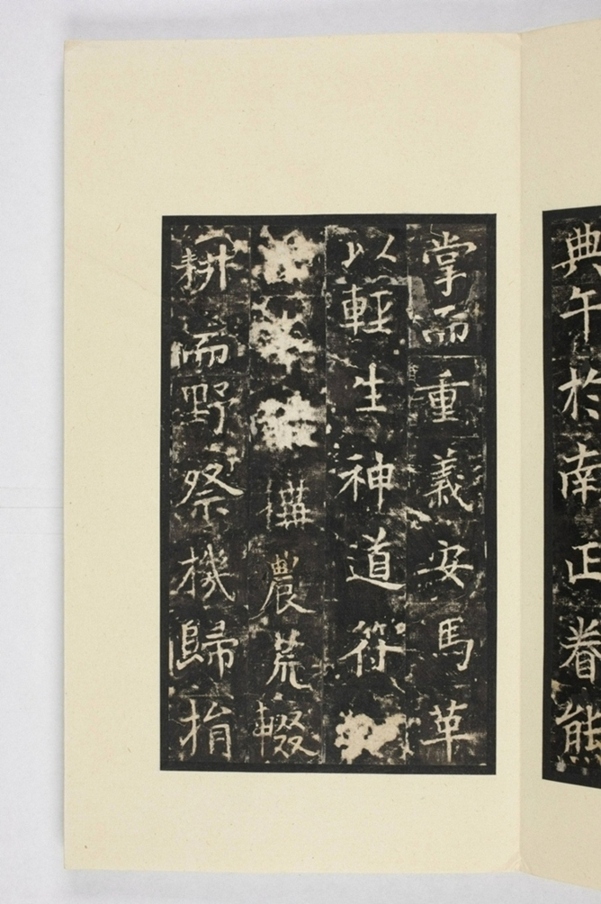 典午於南正眷熊
掌而重義安馬革
以輕生神道符
構農荒輟
耕而野祭機歸指